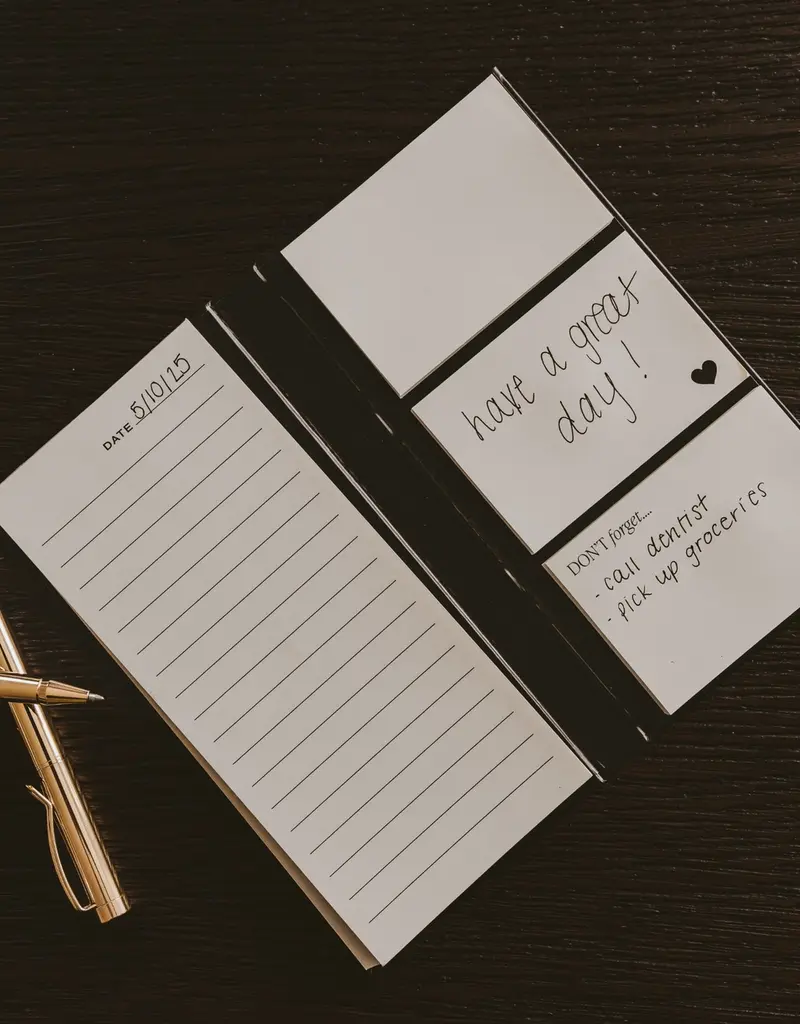 DATE 5/10/25
have a great
day!
DON'T forget....
- call dentist
- pick up groceries